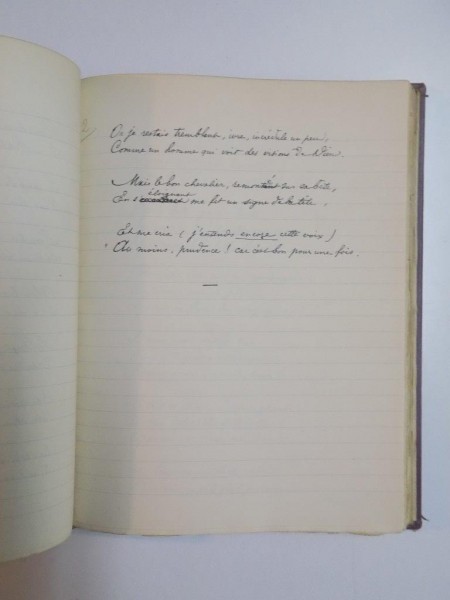 Or je restais tremblant, ivre, incrédule un peu,
Comme un homme qui voit des visions de Dieu.
Mais le bon chevalier, remonté sur sa bête,
En s'éloignant me fit un signe de la tête.
Et me cria (j'entends encore cette voix)
" Au moins, prudence ! car c'est bon pour une fois.